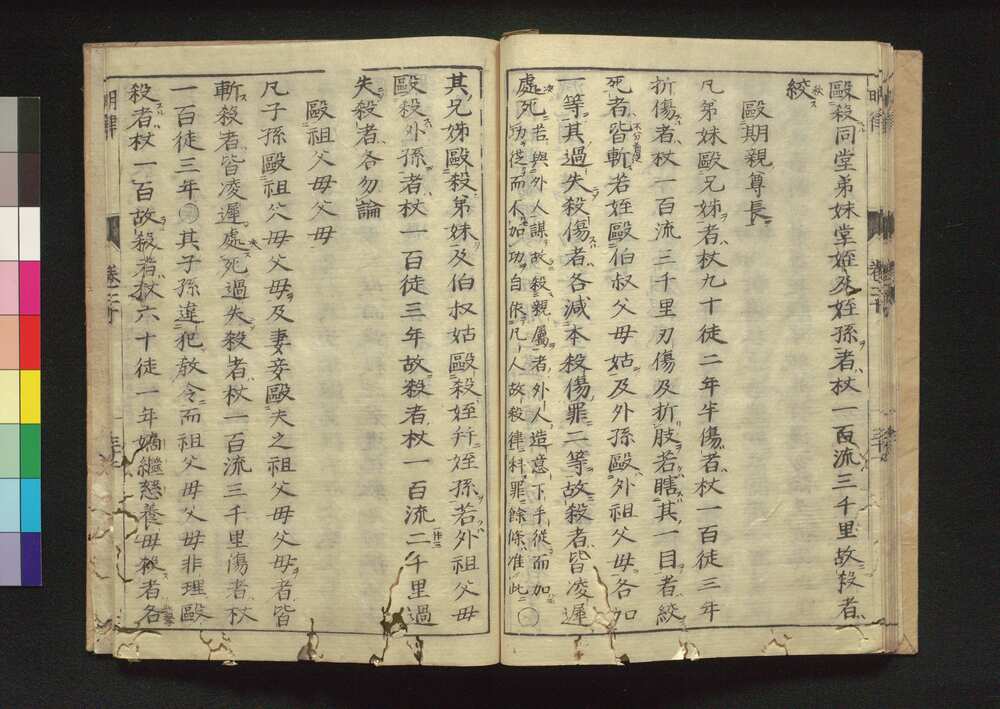 毆殺同堂弟妹堂姪及姪孫者杖一百流三千里故殺者
絞
毆期親尊長
凡弟妹毆兄姊者杖九十徒二年半傷者杖一百徒三年
折傷者杖一百流三千里刃傷及折肢若瞎其一目者絞
死者皆斬若姪毆伯叔父母姑及外孫毆外祖父母各加
一等其過失殺傷者各減本殺傷罪二等故殺者皆凌遲
處死若與外人謀故殺親屬者外人造意下手從而加
功從而不加功自依凡人故殺律科罪餘條准此
其兄姊毆殺弟妹及伯叔姑毆殺姪幷姪孫若外祖父母
毆殺外孫者杖一百徒三年故殺者杖一百流二千里過
失殺者各勿論
毆祖父母父母
凡子孫毆祖父母父母及妻妾毆夫之祖父母父母者皆
斬殺者皆凌遲處死過失殺者杖一百流三千里傷者杖
一百徒三年其子孫違犯教令而祖父母父母非理毆
殺者杖一百故殺者杖六十徒一年嫡繼慈養母殺者各
明律
卷二十